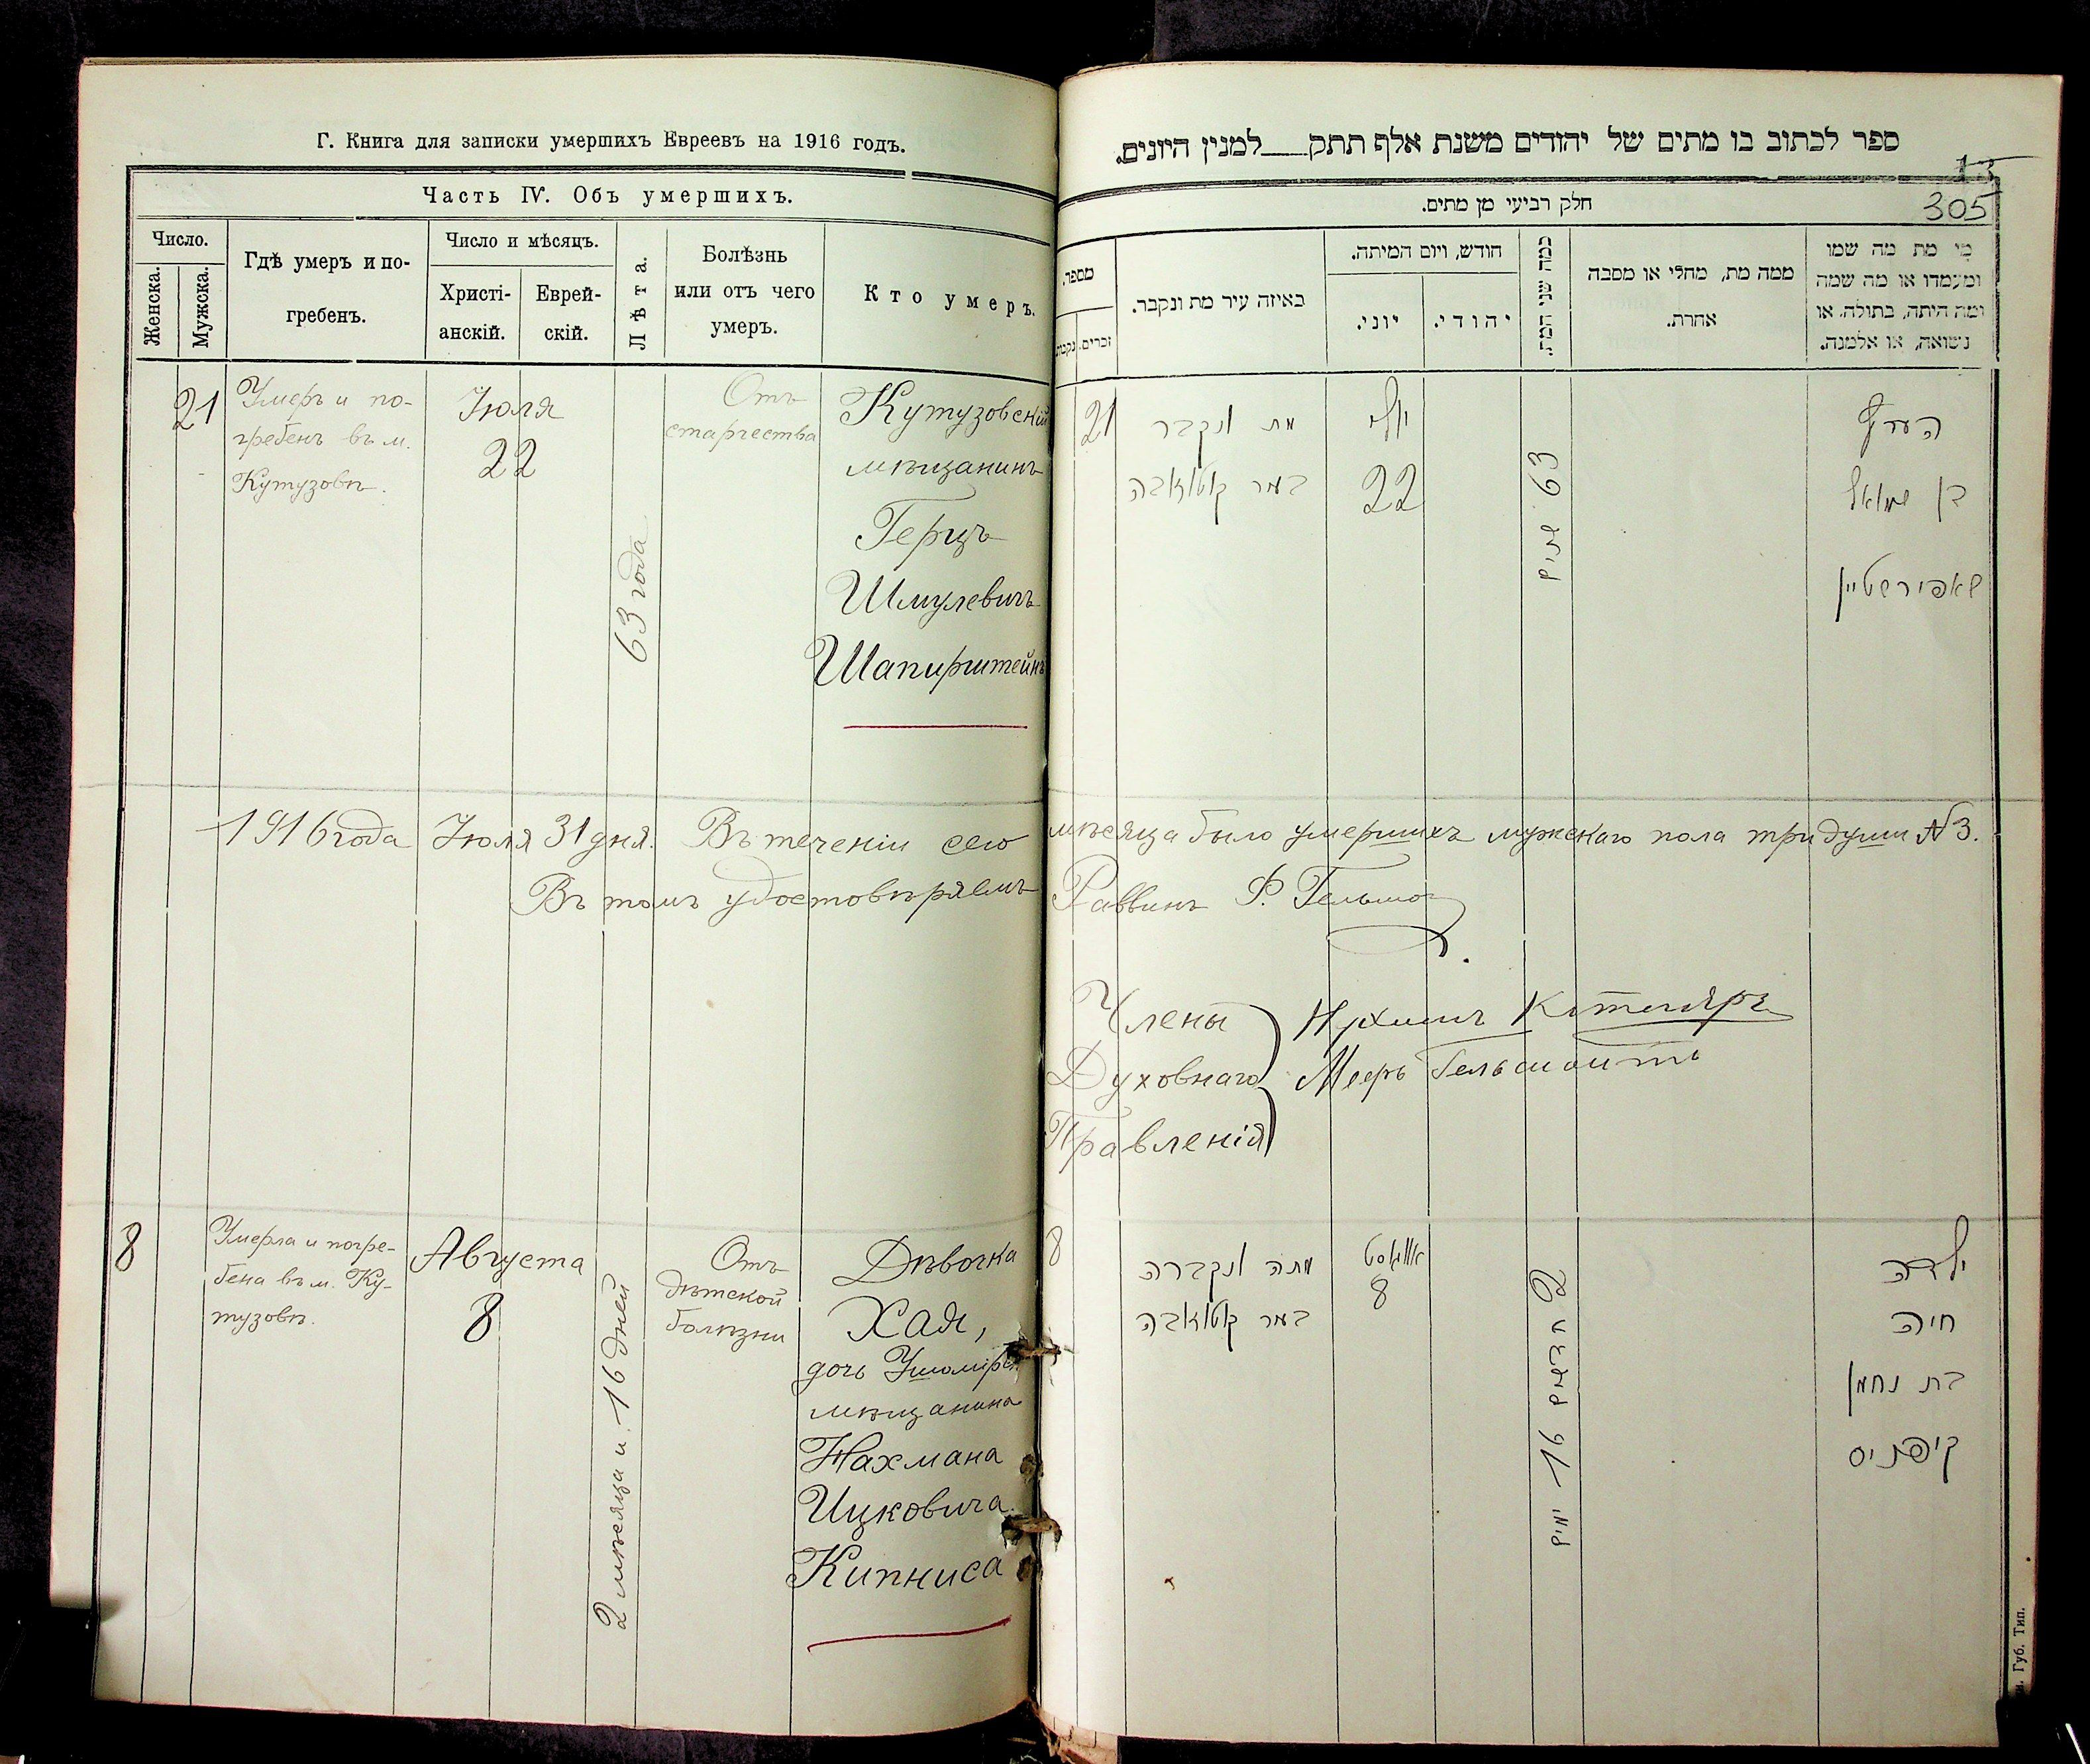 Г. Книга для записки умершихъ Евреевъ на 1916 годъ.
Часть IV. Объ умершихъ.
Число.
Женска.
Мужска.
Гдѣ умеръ и по-
гребенъ.
Число и мѣсяцъ.
Христі-
анскій.
Еврей-
скій.
Лѣта.
Болѣзнь
или отъ чего
умеръ.
Кто умеръ.
21
Умеръ и по-
гребенъ въ м.
Кутузовѣ.
Іюля
22
63 года
Отъ
старчества
Кутузовскій
мѣщанинъ
Герцъ
Шмулевичъ
Шапирштейнъ
ספר לכתוב בו מתים של יהודים משנת אלף תתק למנין היונים.
13
305
חלק רביעי מן מתים.
מספר.
זכרים.
נקבות
באיזה עיר מת ונקבר.
חודש, ויום המיתה.
יוני.
יהודי.
כמה שני המת.
ממה מת, מחלי או מסבה
אחרת.
מי מת מה שמו
ומעמדו או מה שמה
ומה היתה, בתולה, או
נשואה, או אלמנה.
21
מת ונקבר
במר קוטוזאבה
יולי
22
63 שנים
הערץ
בן שמואל
שאפירשטיין
1916 года Іюля 31 дня. Въ теченіи сего мѣсяца было умершихъ мужскаго пола три души №3.
Въ томъ удостовѣряемъ Раввинъ Ф.
Члены
Духовнаго
Правленія
Нухимъ Котляръ
Мееръ
8
Умерла и погре-
бена въ м. Ку-
тузовѣ.
Августа
8
2 мѣсяца и 16 дней
Отъ
дѣтской
болѣзни
Дѣвочка
Хая,
дочь Ушомірск.
мѣщанина
Нахмана
Ицковича
Кипниса
8
מתה ונקברה
במר קוטוזאבה
אווגוסט
8
2 חדשים 16 ימים
ילדה
חיה
בת נחמן
קיפניס
Губ. Тип.